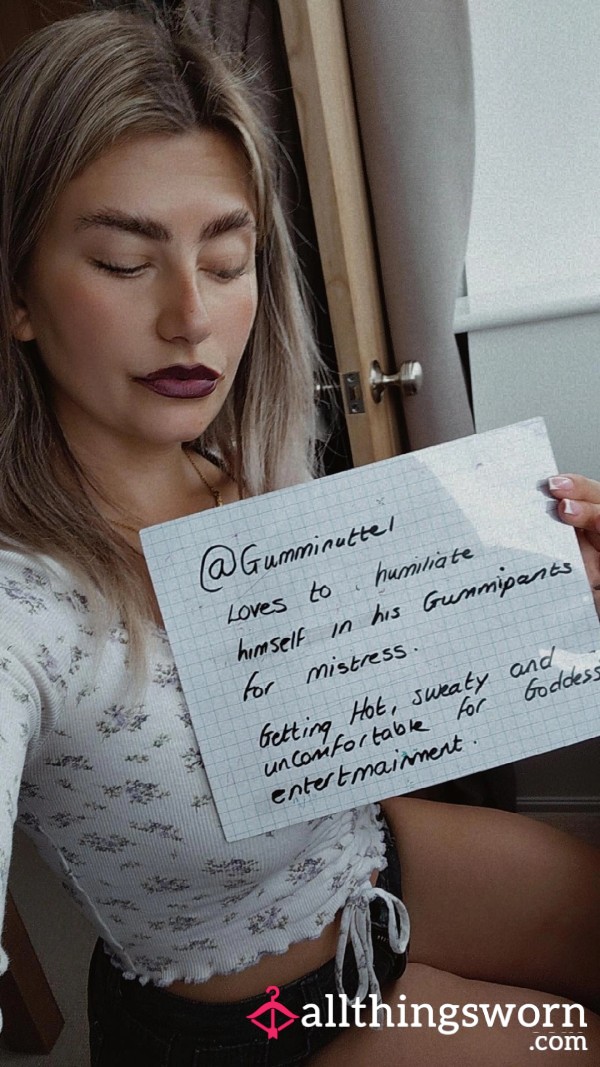 @Gumminuttel
Loves to humiliate
himself in his Gummipants
for mistress.
Getting Hot, sweaty and
uncomfortable for Goddess
entertmainment.
allthingsworn
.com